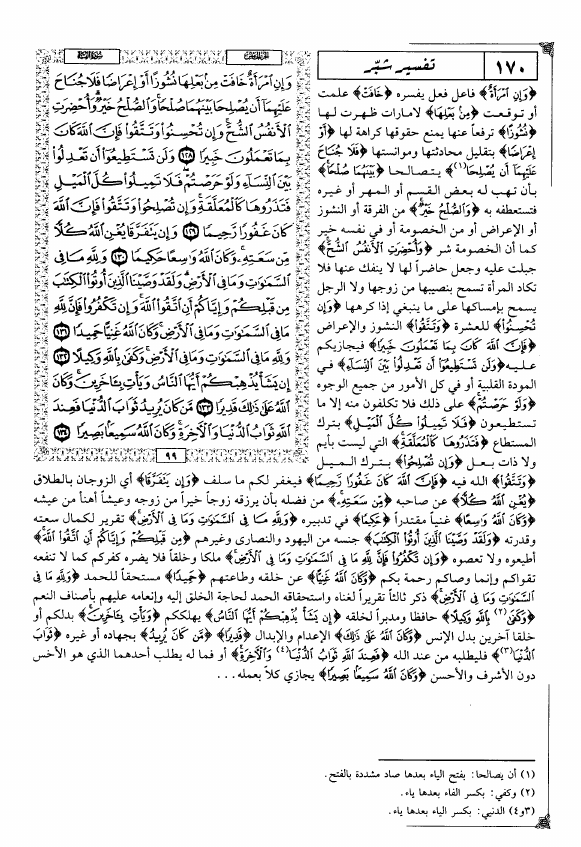 ١٧٠
تفسير شبّر
﴿وَإِنِ امْرَأَةٌ﴾ فاعل فعل يفسره ﴿خَافَتْ﴾ علمت
أو توقعت ﴿مِنْ بَعْلِهَا﴾ لامارات ظهرت لها
﴿نُشُوزًا﴾ ترفعاً عنها بمنع حقوقها كراهة لها ﴿أَوْ
إِعْرَاضًا﴾ بتقليل محادثتها وموانستها ﴿فَلَا جُنَاحَ
عَلَيْهِمَا أَن يُصْلِحَا(١)﴾ يتصالحا ﴿بَيْنَهُمَا صُلْحًا﴾
بأن تهب له بعض القسم أو المهر أو غيره
فتستعطفه به ﴿وَالصُّلْحُ خَيْرٌ﴾ من الفرقة أو النشوز
أو الإعراض أو من الخصومة أو في نفسه خير
كما أن الخصومة شر ﴿وَأُحْضِرَتِ الْأَنفُسُ الشُّحَّ﴾
جبلت عليه وجعل حاضراً لها لا ينفك عنها فلا
تكاد المرأة تسمح بنصيبها من زوجها ولا الرجل
يسمح بإمساكها على ما ينبغي إذا كرهها ﴿وَإِن
تُحْسِنُوا﴾ للعشرة ﴿وَتَتَّقُوا﴾ النشوز والإعراض
﴿فَإِنَّ اللَّهَ كَانَ بِمَا تَعْمَلُونَ خَبِيرًا﴾ فيجازيكم
عليه ﴿وَلَن تَسْتَطِيعُوا أَن تَعْدِلُوا بَيْنَ النِّسَاءِ﴾ في
المودة القلبية أو في كل الأمور من جميع الوجوه
﴿وَلَوْ حَرَصْتُمْ﴾ على ذلك فلا تكلفون منه إلا ما
تستطيعون ﴿فَلَا تَمِيلُوا كُلَّ الْمَيْلِ﴾ بترك
المستطاع ﴿فَتَذَرُوهَا كَالْمُعَلَّقَةِ﴾ التي ليست بأيم
ولا ذات بعل ﴿وَإِن تُصْلِحُوا﴾ بترك الميل
وَإِنِ امْرَأَةٌ خَافَتْ مِنْ بَعْلِهَا نُشُوزًا أَوْ إِعْرَاضًا فَلَا جُنَاحَ
عَلَيْهِمَا أَن يُصْلِحَا بَيْنَهُمَا صُلْحًا وَالصُّلْحُ خَيْرٌ وَأُحْضِرَتِ
الْأَنفُسُ الشُّحَّ وَإِن تُحْسِنُوا وَتَتَّقُوا فَإِنَّ اللَّهَ كَانَ
بِمَا تَعْمَلُونَ خَبِيرًا ١٢٨ وَلَن تَسْتَطِيعُوا أَن تَعْدِلُوا
بَيْنَ النِّسَاءِ وَلَوْ حَرَصْتُمْ فَلَا تَمِيلُوا كُلَّ الْمَيْلِ
فَتَذَرُوهَا كَالْمُعَلَّقَةِ وَإِن تُصْلِحُوا وَتَتَّقُوا فَإِنَّ اللَّهَ
كَانَ غَفُورًا رَّحِيمًا ١٢٩ وَإِن يَتَفَرَّقَا يُغْنِ اللَّهُ كُلًّا
مِّن سَعَتِهِ وَكَانَ اللَّهُ وَاسِعًا حَكِيمًا ١٣٠ وَلِلَّهِ مَا فِي
السَّمَاوَاتِ وَمَا فِي الْأَرْضِ وَلَقَدْ وَصَّيْنَا الَّذِينَ أُوتُوا الْكِتَابَ
مِن قَبْلِكُمْ وَإِيَّاكُمْ أَنِ اتَّقُوا اللَّهَ وَإِن تَكْفُرُوا فَإِنَّ لِلَّهِ
مَا فِي السَّمَاوَاتِ وَمَا فِي الْأَرْضِ وَكَانَ اللَّهُ غَنِيًّا حَمِيدًا ١٣١
وَلِلَّهِ مَا فِي السَّمَاوَاتِ وَمَا فِي الْأَرْضِ وَكَفَى بِاللَّهِ وَكِيلًا ١٣٢
إِن يَشَأْ يُذْهِبْكُمْ أَيُّهَا النَّاسُ وَيَأْتِ بِآخَرِينَ وَكَانَ
اللَّهُ عَلَى ذَلِكَ قَدِيرًا ١٣٣ مَّن كَانَ يُرِيدُ ثَوَابَ الدُّنْيَا فَعِندَ
اللَّهِ ثَوَابُ الدُّنْيَا وَالْآخِرَةِ وَكَانَ اللَّهُ سَمِيعًا بَصِيرًا ١٣٤
٩٩
﴿وَتَتَّقُوا﴾ الله فيه ﴿فَإِنَّ اللَّهَ كَانَ غَفُورًا رَّحِيمًا﴾ فيغفر لكم ما سلف ﴿وَإِن يَتَفَرَّقَا﴾ أي الزوجان بالطلاق
﴿يُغْنِ اللَّهُ كُلًّا﴾ عن صاحبه ﴿مِّن سَعَتِهِ﴾ من فضله بأن يرزقه زوجاً خيراً من زوجه وعيشاً أهنأ من عيشه
﴿وَكَانَ اللَّهُ وَاسِعًا﴾ غنياً مقتدراً ﴿حَكِيمًا﴾ في تدبيره ﴿وَلِلَّهِ مَا فِي السَّمَاوَاتِ وَمَا فِي الْأَرْضِ﴾ تقرير لكمال سعته
وقدرته ﴿وَلَقَدْ وَصَّيْنَا الَّذِينَ أُوتُوا الْكِتَابَ﴾ جنسه من اليهود والنصارى وغيرهم ﴿مِن قَبْلِكُمْ وَإِيَّاكُمْ أَنِ اتَّقُوا اللَّهَ﴾
أطيعوه ولا تعصوه ﴿وَإِن تَكْفُرُوا فَإِنَّ لِلَّهِ مَا فِي السَّمَاوَاتِ وَمَا فِي الْأَرْضِ﴾ ملكا وخلقاً فلا يضره كفركم كما لا تنفعه
تقواكم وإنما وصاكم رحمة بكم ﴿وَكَانَ اللَّهُ غَنِيًّا﴾ عن خلقه وطاعتهم ﴿حَمِيدًا﴾ مستحقاً للحمد ﴿وَلِلَّهِ مَا فِي
السَّمَاوَاتِ وَمَا فِي الْأَرْضِ﴾ ذكر ثالثاً تقريراً لغناه واستحقاقه الحمد لحاجة الخلق إليه وإنعامه عليهم بأصناف النعم
﴿وَكَفَى(٢) بِاللَّهِ وَكِيلًا﴾ حافظا ومدبراً لخلقه ﴿إِن يَشَأْ يُذْهِبْكُمْ أَيُّهَا النَّاسُ﴾ يهلككم ﴿وَيَأْتِ بِآخَرِينَ﴾ بدلكم أو
خلقا آخرين بدل الإنس ﴿وَكَانَ اللَّهُ عَلَى ذَلِكَ﴾ الإعدام والإبدال ﴿قَدِيرًا﴾ ﴿مَّن كَانَ يُرِيدُ﴾ بجهاده أو غيره ﴿ثَوَابَ
الدُّنْيَا(٣)﴾ فليطلبه من عند الله ﴿فَعِندَ اللَّهِ ثَوَابُ الدُّنْيَا(٤) وَالْآخِرَةِ﴾ أو فما له يطلب أحدهما الذي هو الأخس
دون الأشرف والأحسن ﴿وَكَانَ اللَّهُ سَمِيعًا بَصِيرًا﴾ يجازي كلاً بعمله...
(١) أن يصالحا: بفتح الياء بعدها صاد مشددة بالفتح.
(٢) وكفي: بكسر الفاء بعدها ياء.
(٣و٤) الدنيي: بكسر الياء بعدها ياء.